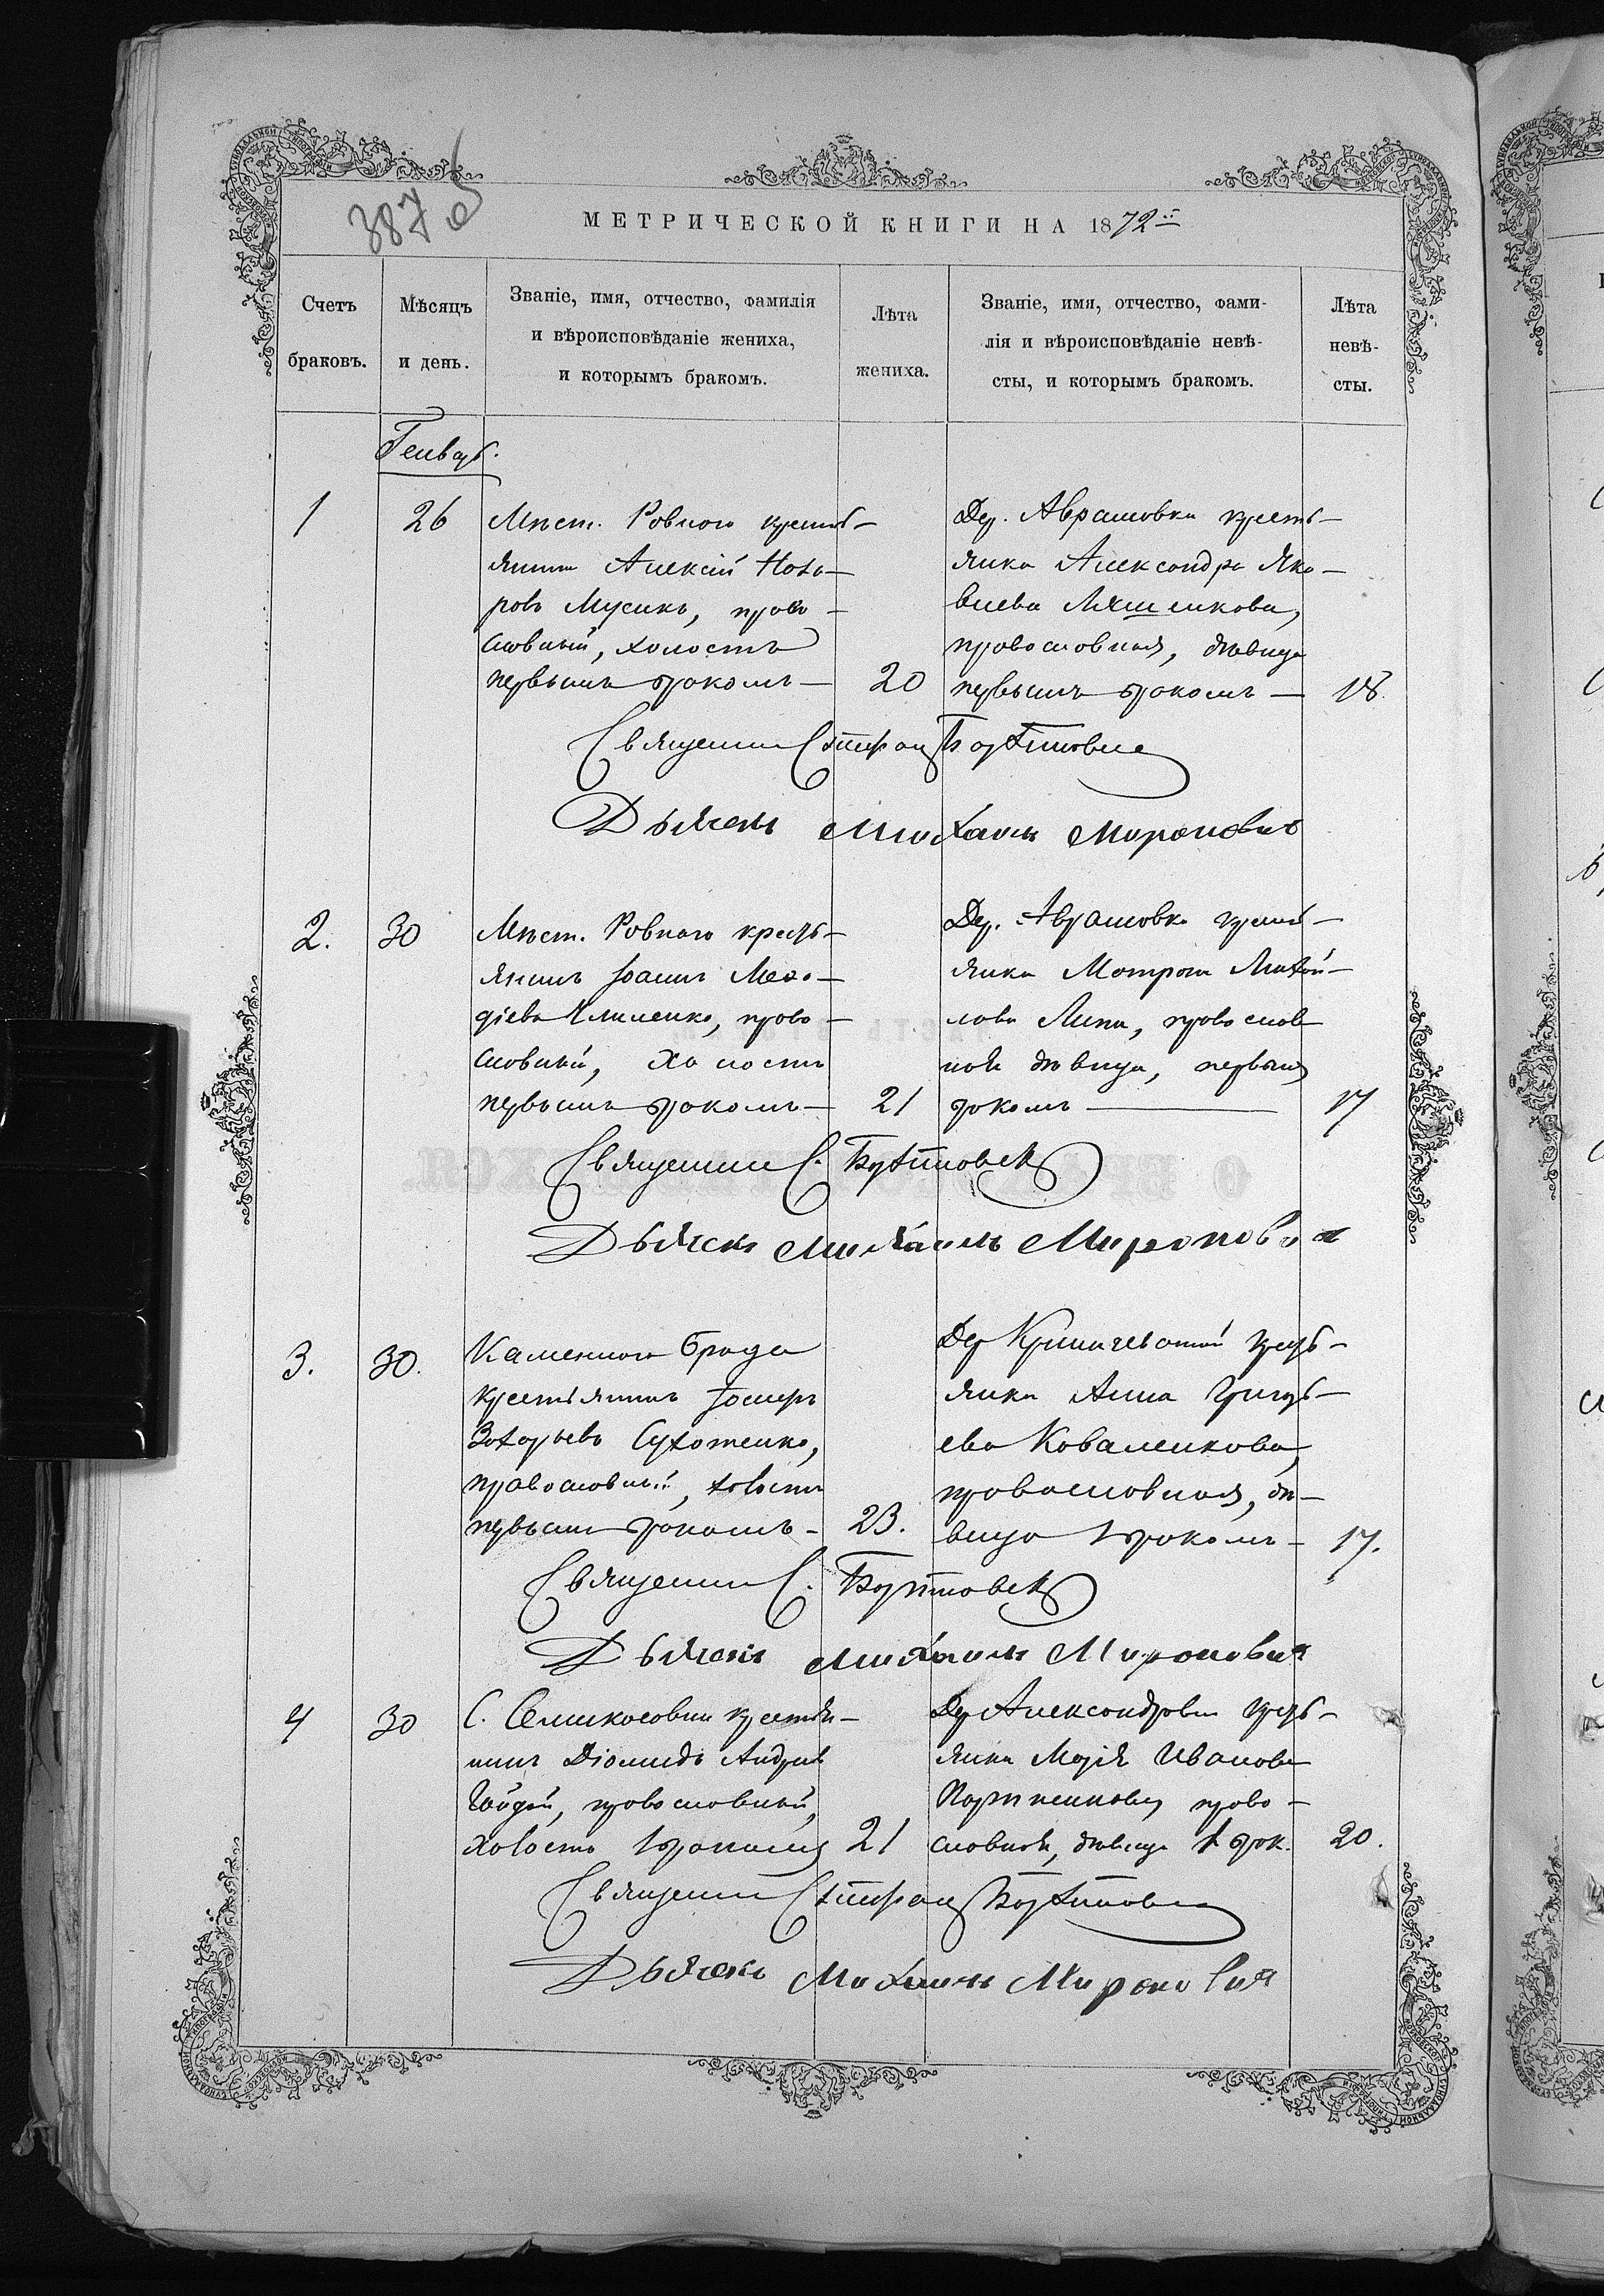 387 об
МЕТРИЧЕСКОЙ КНИГИ НА 1872й
Счетъ браковъ.
Мѣсяцъ и день.
Званіе, имя, отчество, фамилія
и вѣроисповѣданіе жениха,
и которымъ бракомъ.
Лѣта жениха.
Званіе, имя, отчество, фами-
лія и вѣроисповѣданіе невѣ-
сты, и которымъ бракомъ.
Лѣта невѣ-
сты.
Генварь.
1
26
Мѣст. Ровнаго кресть-
янинъ Алексій Наза-
ровъ Мусикъ, право-
славный, холостъ
первымъ бракомъ —
20
Дер. Аврамовки кресть-
янка Александра Яко-
влева Ляшенкова,
православная, дѣвица
первымъ бракомъ —
18.
Священникъ Стефанъ
Дьячекъ Михаилъ Мироновичъ
2.
30
Мѣст. Ровнаго кресть-
янинъ Іоаннъ Меѳо-
діевъ Клименко, право-
славный, холостъ
первымъ бракомъ —
21
Дер. Аврамовки кресть-
янка Матрона Михай-
лова Липа, православ
ная дѣвица, первымъ
бракомъ —
17
Священникъ С.
Дьячекъ Михаилъ Мироновичъ
3.
30.
Каменнаго Брода
крестьянинъ Іосифъ
Захарьевъ Сухотенко,
православный, холостъ
первымъ бракомъ -
23.
Дер Криничеватой кресть-
янка Анна Григорь-
ева Коваленкова,
православная, дѣ-
вица 1 бракомъ -
17.
Священникъ С.
Дьячекъ Михаилъ Мироновичъ
4
30
С. Семикосовки крестья-
нинъ Діомидъ Андреевъ
Гайдай, православный,
холостъ 1 бракомъ
21
Дер Александровки кресть-
янка Марія Иванова
право-
славная, дѣвица 1 брак.
20.
Священникъ Стефанъ
Дьячекъ Михаилъ Мироновичъ